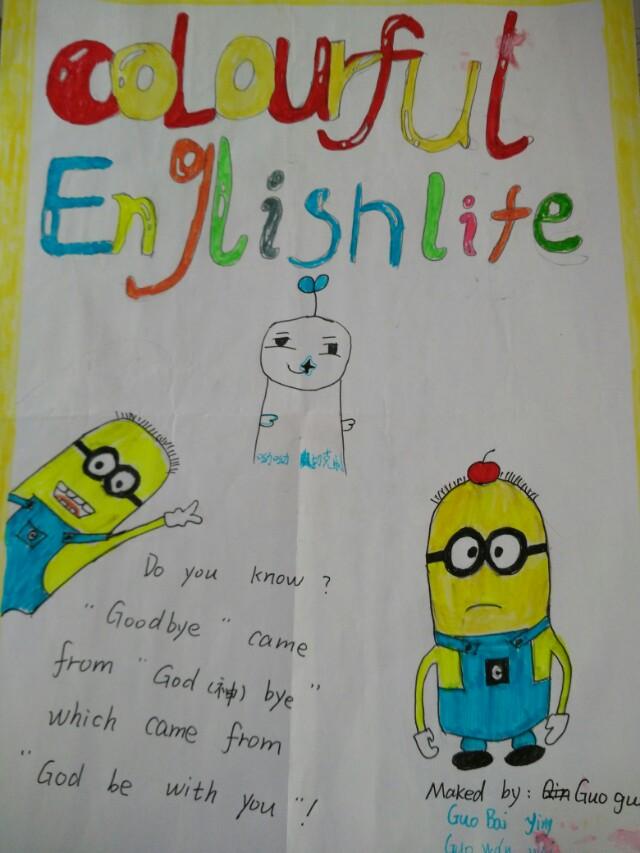 Colourful
English life
Do you know ?
" Goodbye " came
from " God (神) bye "
which came from
" God be with you " !
C
Maked by : Guo gu
Guo Bai Yin
Guo